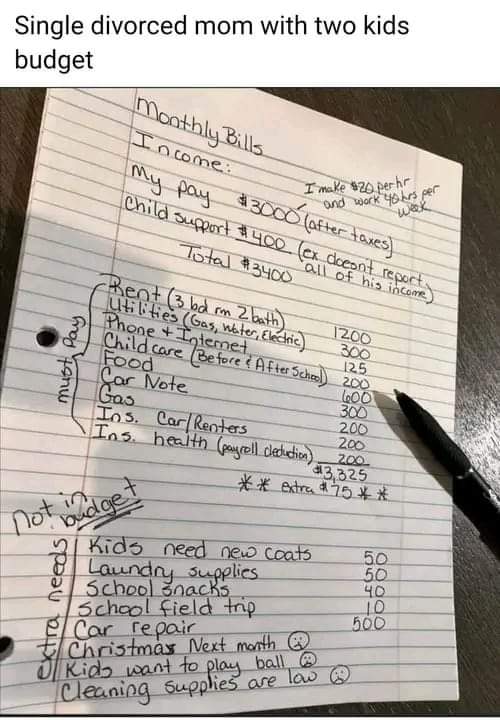 Single divorced mom with two kids
budget
Monthly Bills
Income:
I make $20 per hr
and work 40 hrs per
week
My pay $3000 (after taxes)
Child support $400 (ex doesn't report
all of his income)
Total $3400
must pay
Rent (3 bd rm 2 bath) 1200
Utilities (Gas, water, Electric) 300
Phone + Internet 125
Childcare (Before & After School) 200
Food 600
Car Note 300
Gas 200
Ins. Car/Renters 200
Ins. health (payroll deduction) 200
$3,325
** extra $75 **
not in
budget
extra needs
Kids need new coats 50
Laundry supplies 50
School snacks 40
School field trip 10
Car repair 500
Christmas Next month ☹
Kids want to play ball ☹
Cleaning supplies are low ☹